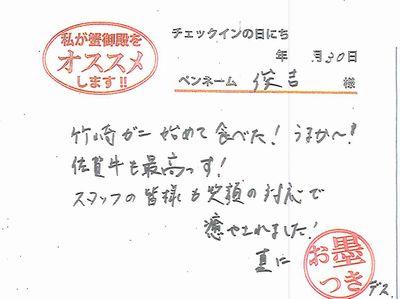 私が蟹御殿を
オススメ
します!!
チェックインの日にち
年 月30日
ペンネーム 俊吉 様
竹崎ガニ始めて食べた！うまか〜！
佐賀牛も最高っす！
スタッフの皆様も笑顔の対応で
癒やされました！
真に
お墨
つき
デス